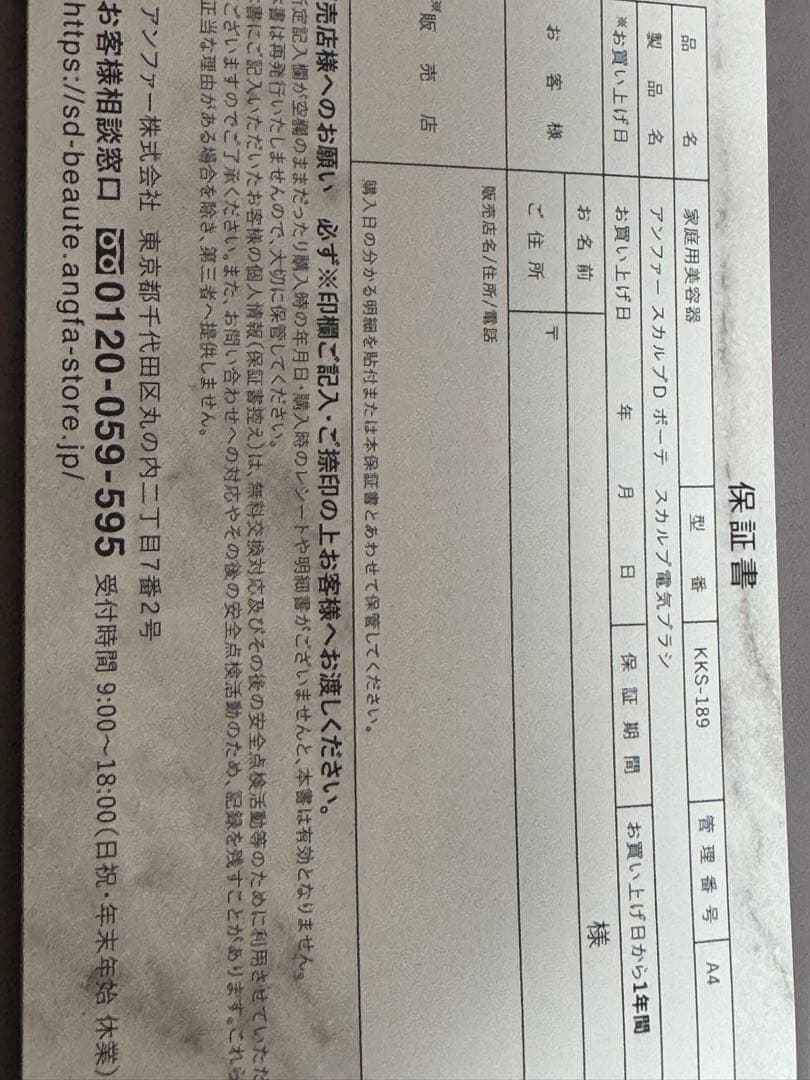 保証書
品名 家庭用美容器 型番 KKS-189 管理番号 A4
製品名 アンファー スカルプD ボーテ スカルプ電気ブラシ
※お買い上げ日 お買い上げ日 年 月 日 保証期間 お買い上げ日から1年間
お客様 お名前 様
ご住所 〒
※販売店 販売店名/住所/電話
購入日の分かる明細を貼付または本保証書とあわせて保管してください。
売店様へのお願い 必ず※印欄ご記入・ご捺印の上お客様へお渡しください。
所定記入欄が空欄のままだったり購入時の年月日・購入時のレシートや明細書がございませんと、本書は有効となりません。
書は再発行いたしませんので、大切に保管してください。
書にご記入いただいたお客様の個人情報(保証書控え)は、無料交換対応及びその後の安全点検活動等のために利用させていただ
ございますのでご了承ください。また、お問い合わせへの対応やその後の安全点検活動のため、記録を残すことがあります。これら
正当な理由がある場合を除き、第三者へ提供しません。
アンファー株式会社 東京都千代田区丸の内二丁目7番2号
お客様相談窓口 0120-059-595 受付時間 9:00〜18:00(日祝・年末年始 休業)
https://sd-beaute.angfa-store.jp/